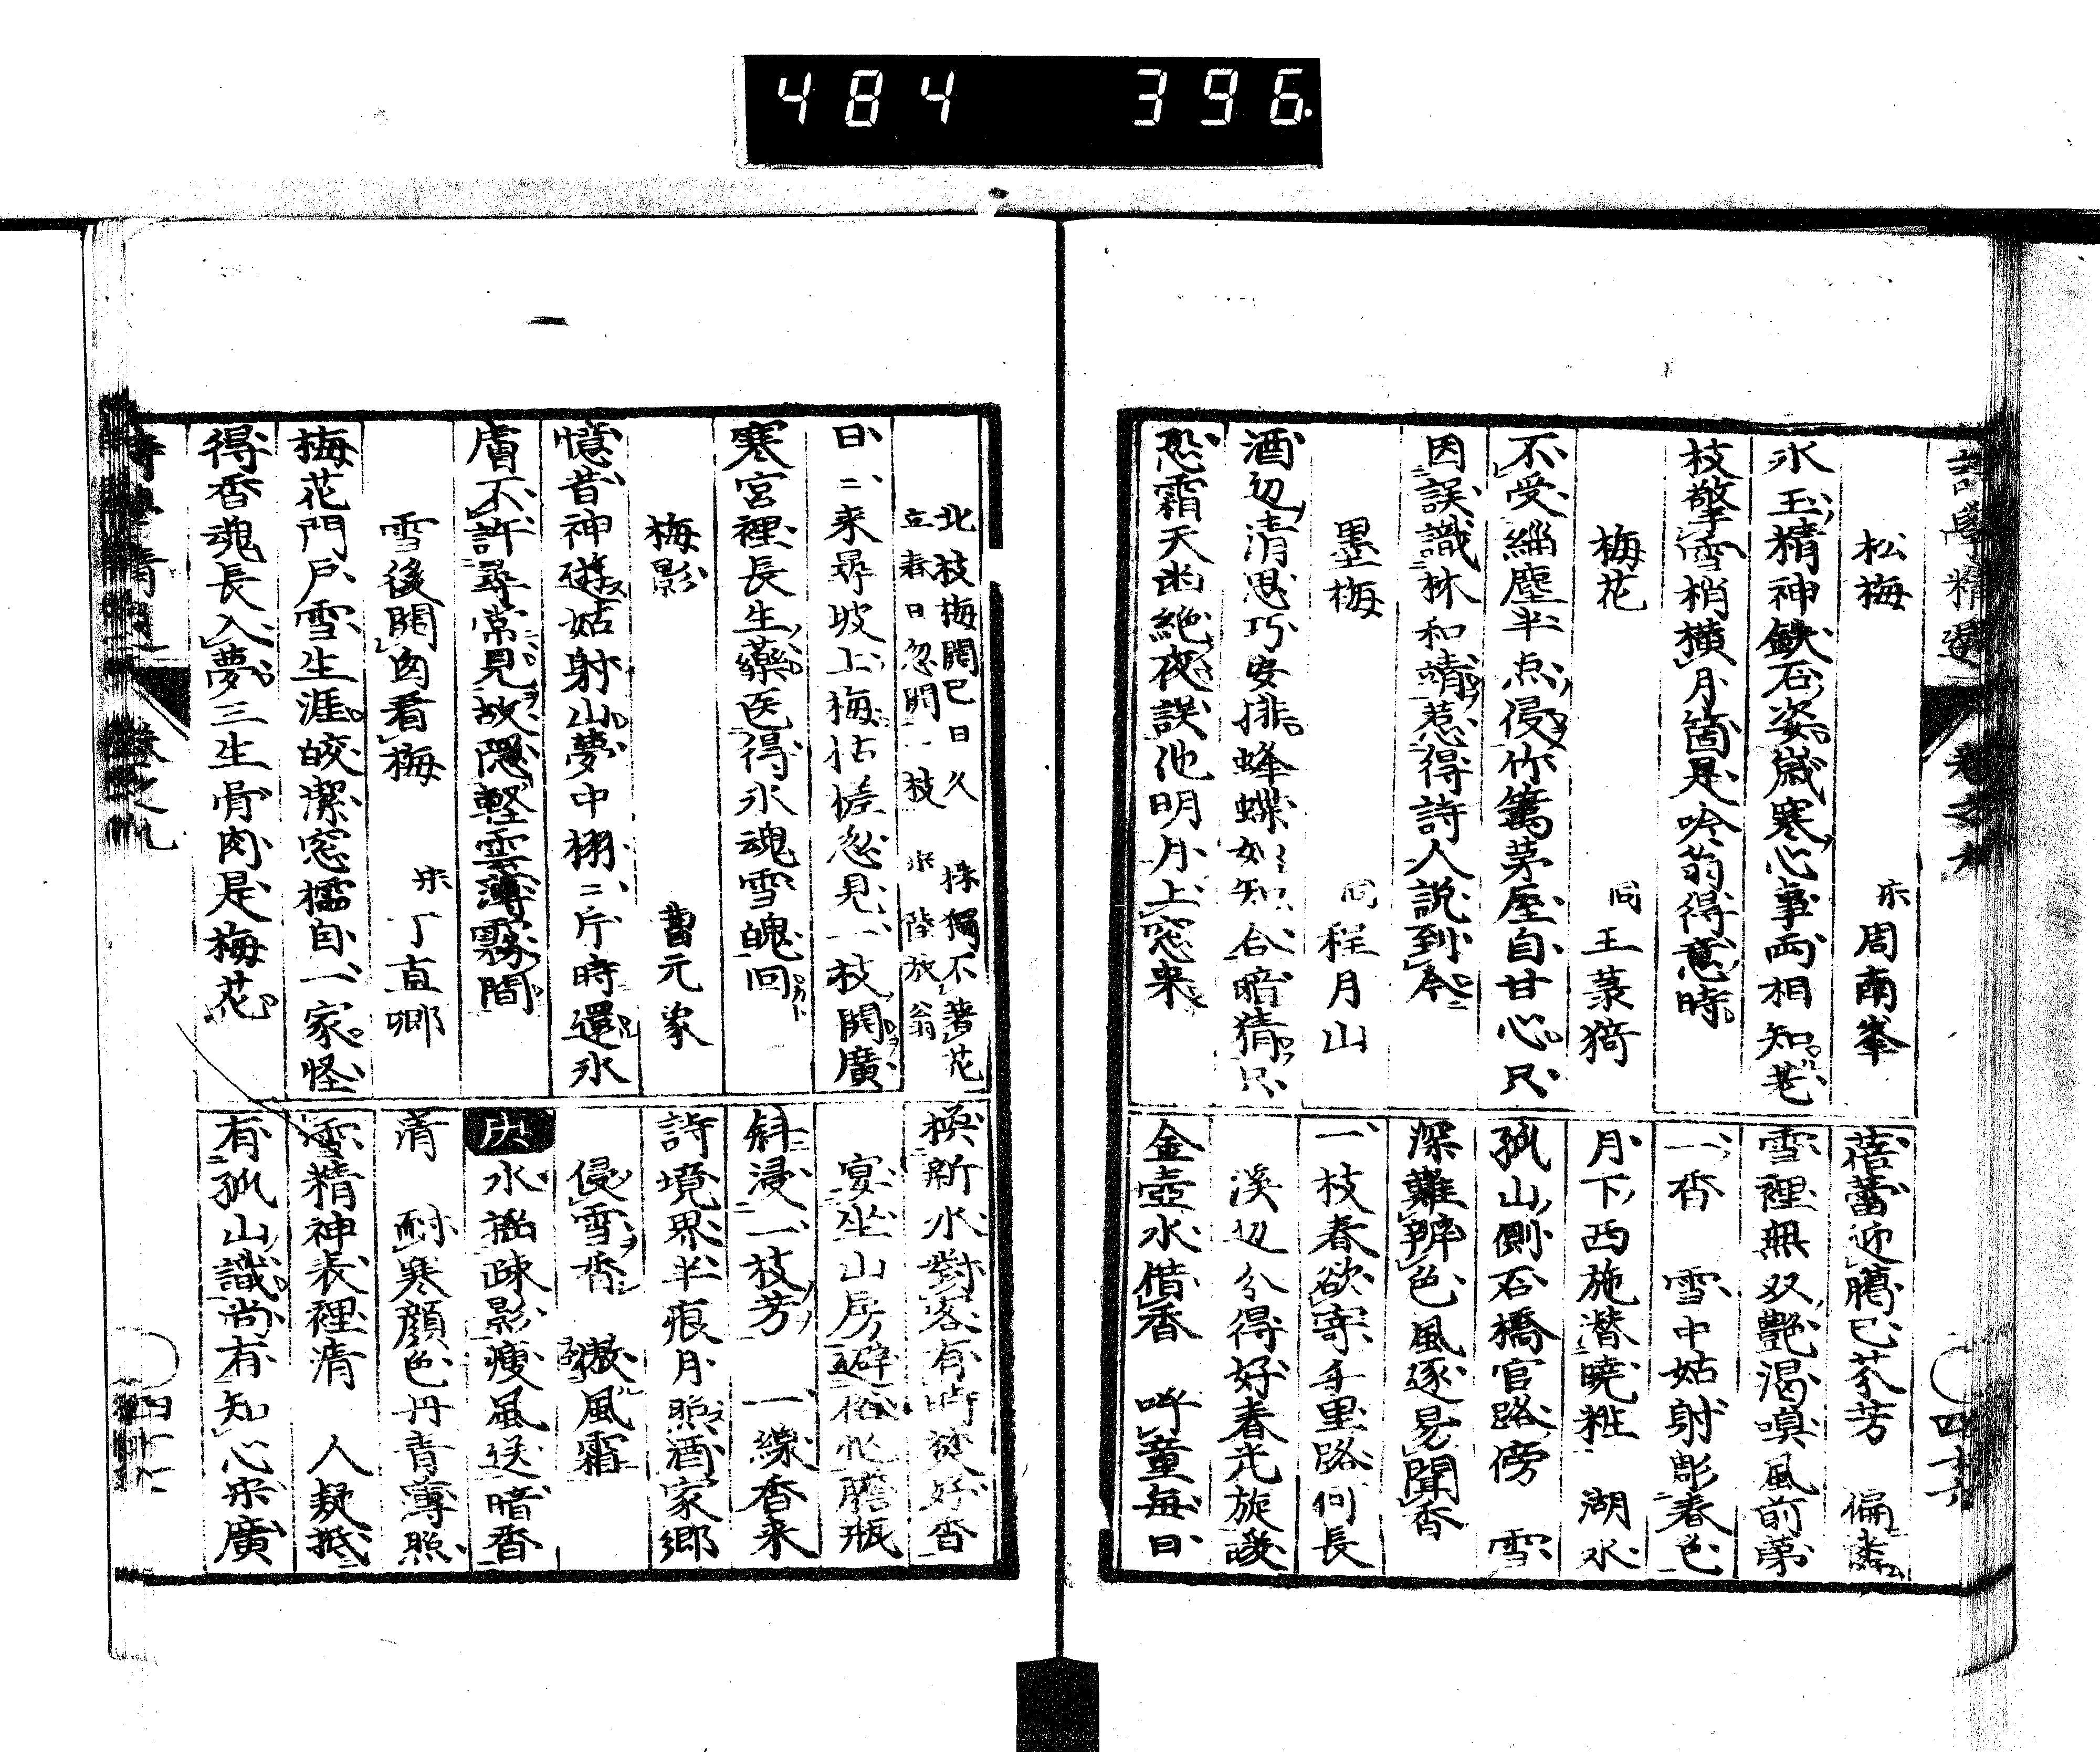 484 396
詩學精選 卷之九 四十六
松梅 宋 周南峯
氷玉精神鉄石姿歲寒心事両相知老
枝擎雪梢橫月箇是吟翁得意時
梅花 同 王菉猗
不受緇塵半点侵竹篱茅屋自甘心只
因誤識林和靖惹得詩人説到今
墨梅 同 程月山
酒辺清思巧安排蜂蝶如知合暗猜只
恐霜天幽絶夜誤他明月上窓来
蓓蕾迎臈已芬芳 偏嗇
雪裡無双艶渴嗅風前苐
一香 雪中姑射彫春色
月下西施潜曉粧 湖水
孤山側石橋官路傍 雪
深難辨色風逐易聞香
一枝春欲寄千里路何長
溪辺分得好春光旋謾
金壺水借香 呼童每日
北枝梅開已日久 一株獨不著花
立春日忽開一枝 宋 陸放翁
日〻来尋坡上梅枯槎忽見一枝開廣
寒宮裡長生藥医得氷魂雪魄回
梅影 曹元象
憶昔神遊姑射山夢中栩〻片時還氷
膚不許尋常見故隠軽雲薄霧間
雪後開窓看梅 宋 丁直卿
梅花門戸雪生涯皎潔窓櫺自一家怪
得香魂長入夢三生骨肉是梅花
換新水對客有時焚好香
宴坐山房避俗忙膽瓶
斜浸一枝芳 一縷香来
詩境界半痕月照酒家郷
侵雪香 傲風霜
庚 水摇踈影瘦風送暗香
清 耐寒顔色丹青薄照
雪精神表裡清 人疑抵
有孤山識尚有知心宋廣